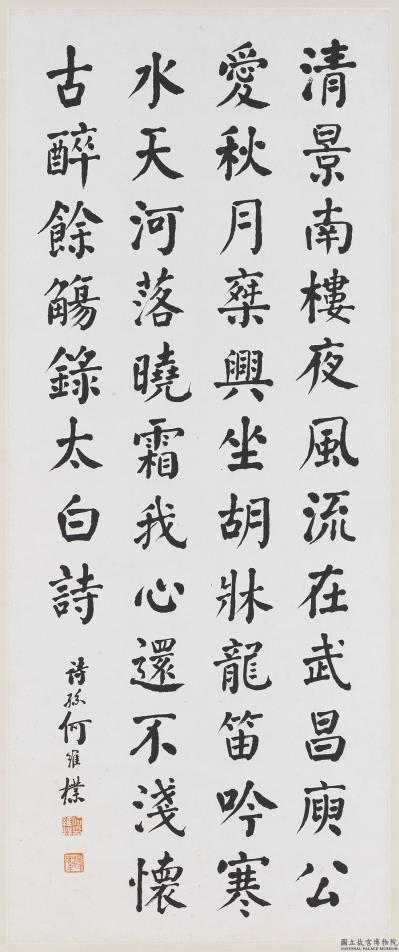 清景南樓夜風流在武昌庾公
愛秋月椉興坐胡牀龍笛吟寒
水天河落曉霜我心還不淺懷
古醉餘觴錄太白詩
詩孫何維樸
國立故宮博物院
NATIONAL PALACE MUSEUM